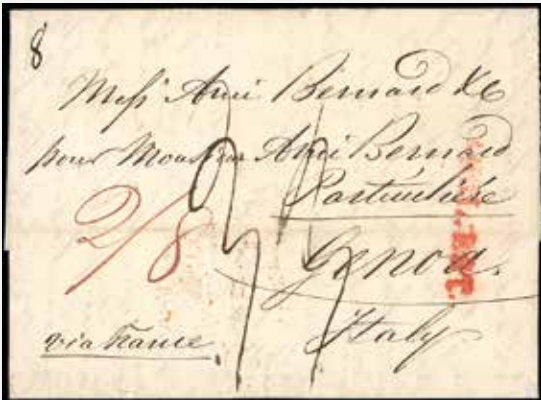 8
Messrs Ami Bernard &C
pour Monsieur Ami Bernard
Particulière
2/8
Genoa.
via France.
Italy